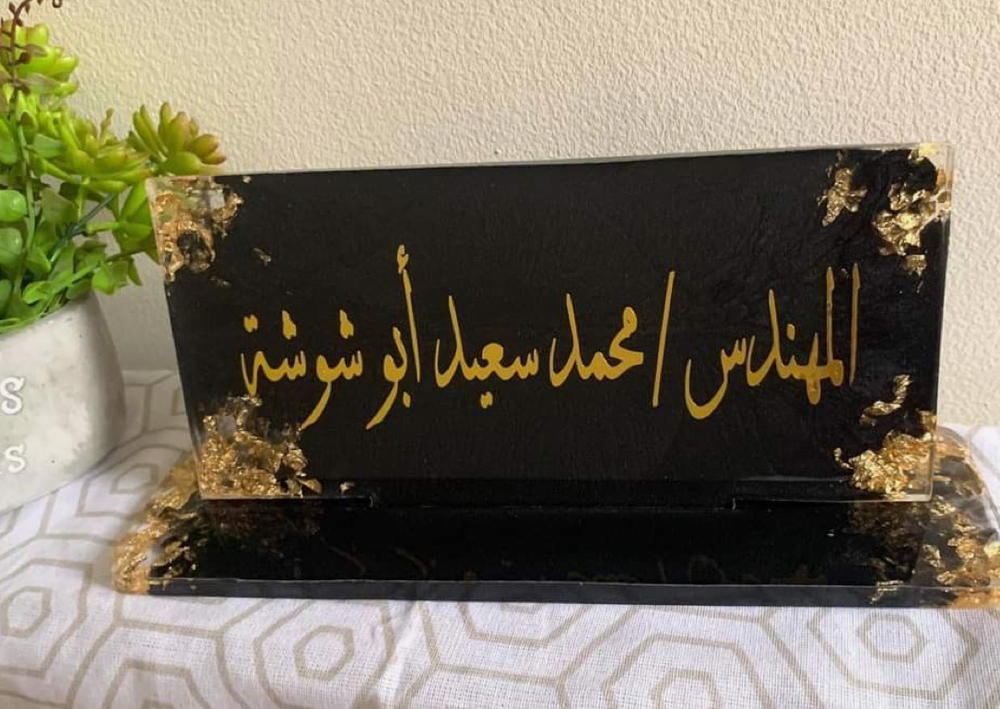 المهندس / محمد سعيد أبو شوشة
S
s